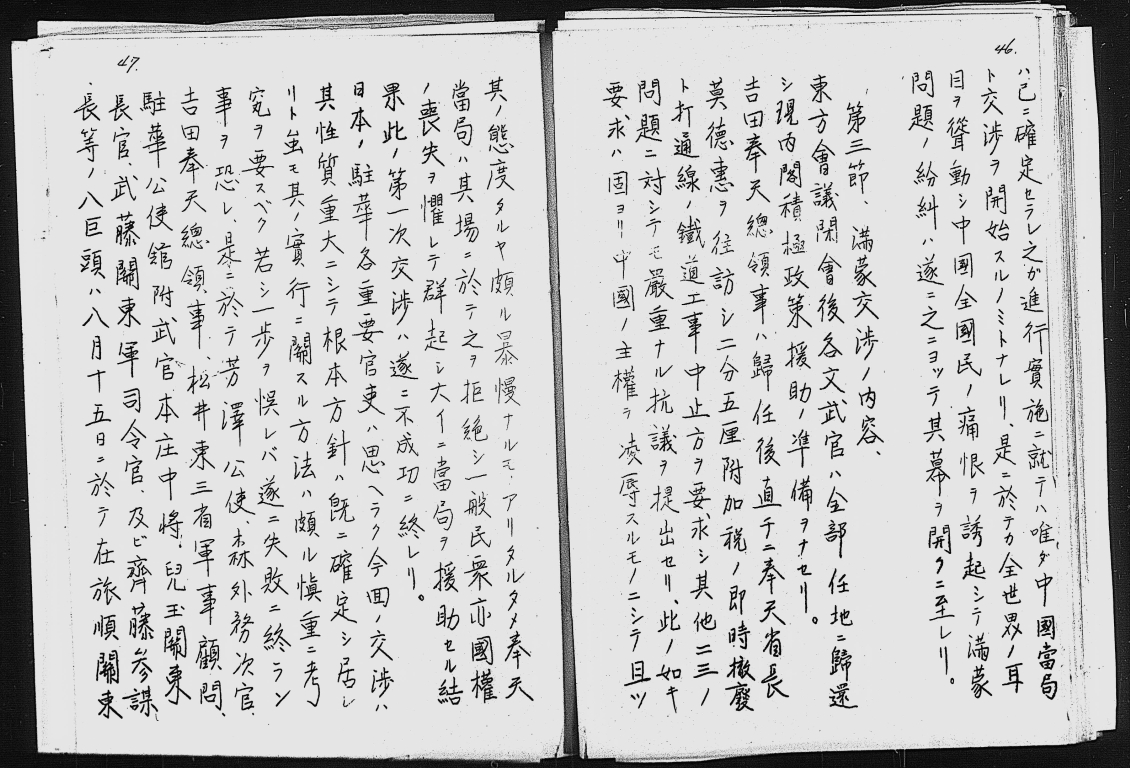 46.
ハ已ニ確定セラレ之ガ進行實施ニ就テハ唯ダ中國當局
ト交渉ヲ開始スルノミトナレリ、是ニ於テカ全世界ノ耳
目ヲ聳動シ中國全國民ノ痛恨ヲ誘起シテ滿蒙
問題ノ紛糾ハ遂ニ之ニヨッテ其幕ヲ開クニ至レリ。
第三節、滿蒙交渉ノ内容、
東方會議閉會後各文武官ハ全部任地ニ歸還
シ現内閣積極政策援助ノ準備ヲナセリ。
吉田奉天總領事ハ歸任後直チニ奉天省長
莫德惠ヲ往訪シ二分五厘附加税ノ即時撤廢
ト打通線ノ鐵道工事中止方ヲ要求シ其他二三ノ
問題ニ対シテモ嚴重ナル抗議ヲ提出セリ、此ノ如キ
要求ハ固ヨリ中國ノ主權ヲ凌辱スルモノニシテ且ツ
47.
其ノ態度タルヤ頗ル暴慢ナルモノアリタルタメ奉天
當局ハ其場ニ於テ之ヲ拒絶シ一般民衆亦國權
ノ喪失ヲ懼レテ群起シ大イニ當局ヲ援助セル結
果此ノ第一次交渉ハ遂ニ不成功ニ終レリ。
日本ノ駐華各重要官吏ハ思ヘラク今回ノ交渉ハ
其性質重大ニシテ根本方針ハ既ニ確定シ居レ
リト虽モ其ノ實行ニ關スル方法ハ頗ル愼重ニ考
究ヲ要スベク若シ一歩ヲ誤レバ遂ニ失敗ニ終ラン
事ヲ恐レ、是ニ於テ芳澤公使、森外務次官、
吉田奉天總領事、松井東三省軍事顧問、
駐華公使館附武官本庄中將、兒玉關東
長官、武藤關東軍司令官、及ビ齊藤参謀
長等ノ八巨頭ハ八月十五日ニ於テ在旅順關東